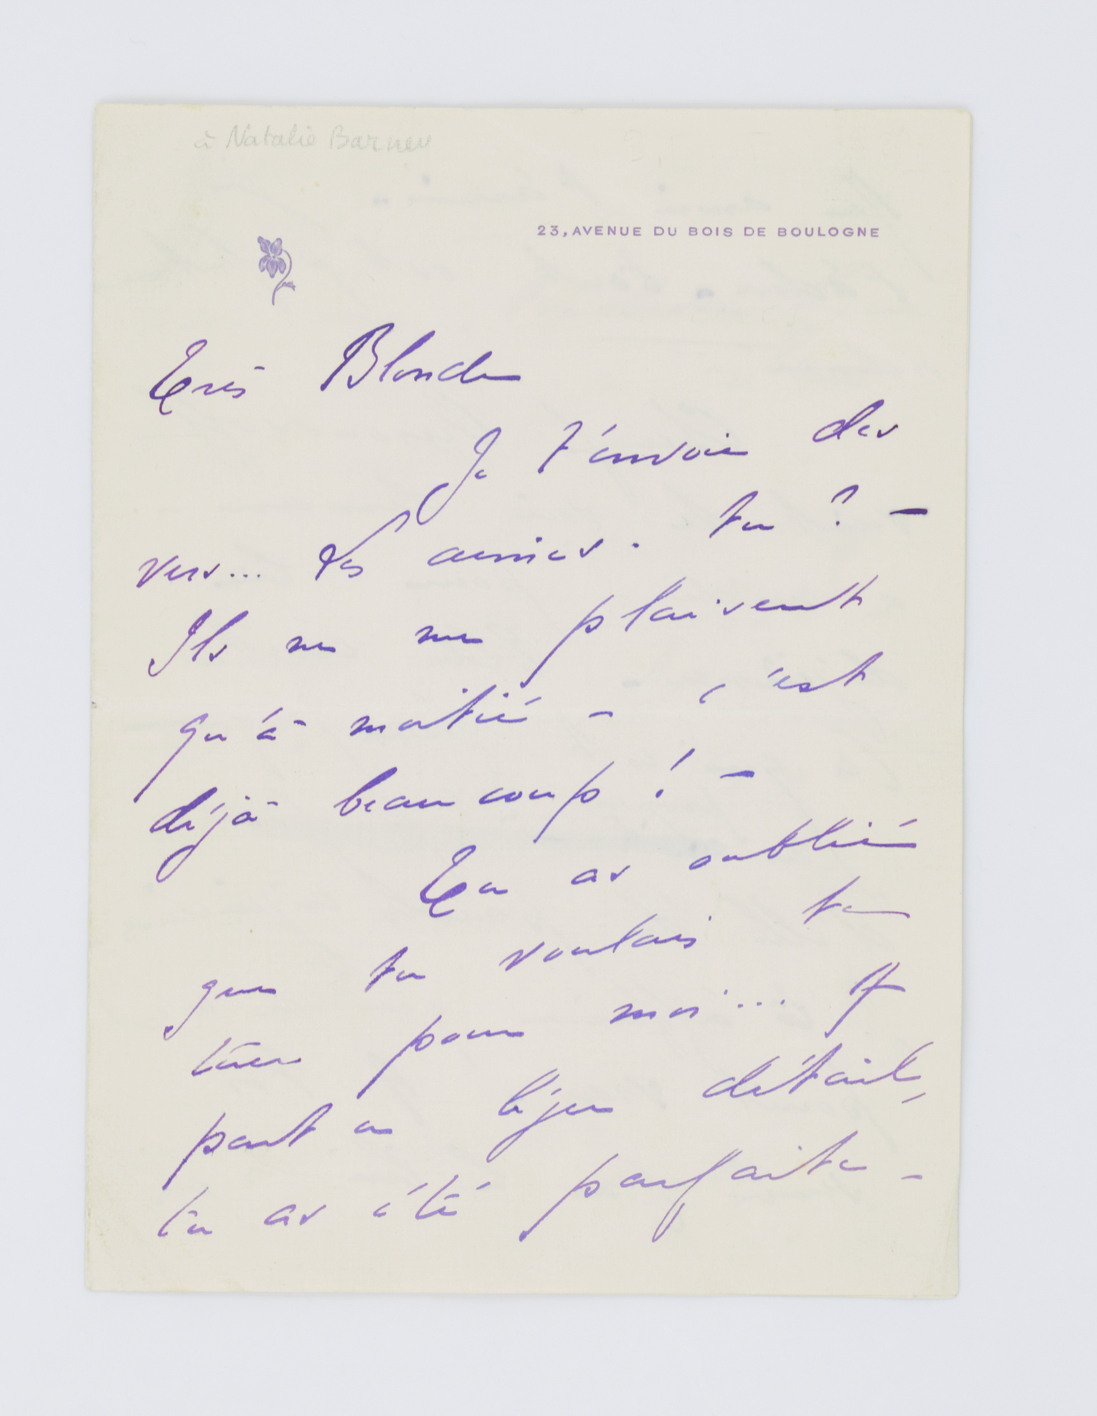 à Natalie Barney
23, AVENUE DU BOIS DE BOULOGNE
Très Blonde
Je t'envoie des
vers... Les aimes-tu ? –
Ils ne me plaisent
qu'à moitié – c'est
déjà beaucoup ! –
Tu as oublié
que tu voulais te
tuer pour moi... A
part ce léger détail,
tu as été parfaite –